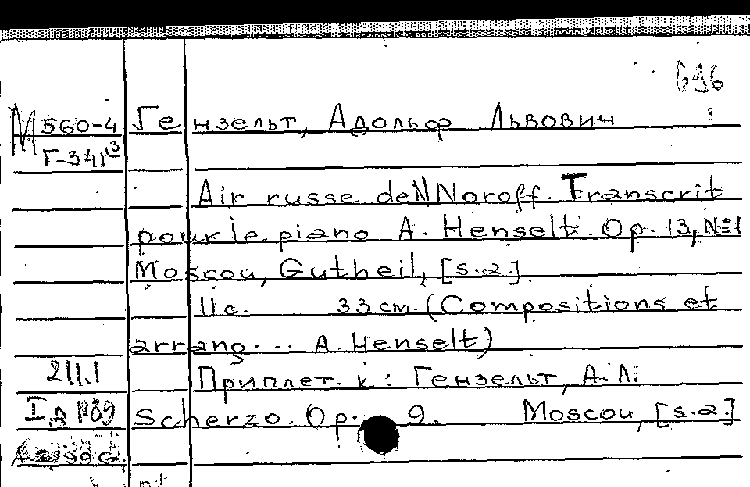 696
М 560-4 Гензельт, Адольф Львович
Г-341
Air russe de N Noroff. Transcrit
pour le piano A. Henselt. Op. 13, №1
Moscou, Gutheil, [s.a.]
11 с. 33 см. (Compositions et
arrang... A. Henselt)
211.1 Приплет. к: Гензельт, А.Л:
Scherzo. Op. 9. Moscou, [s.a.]